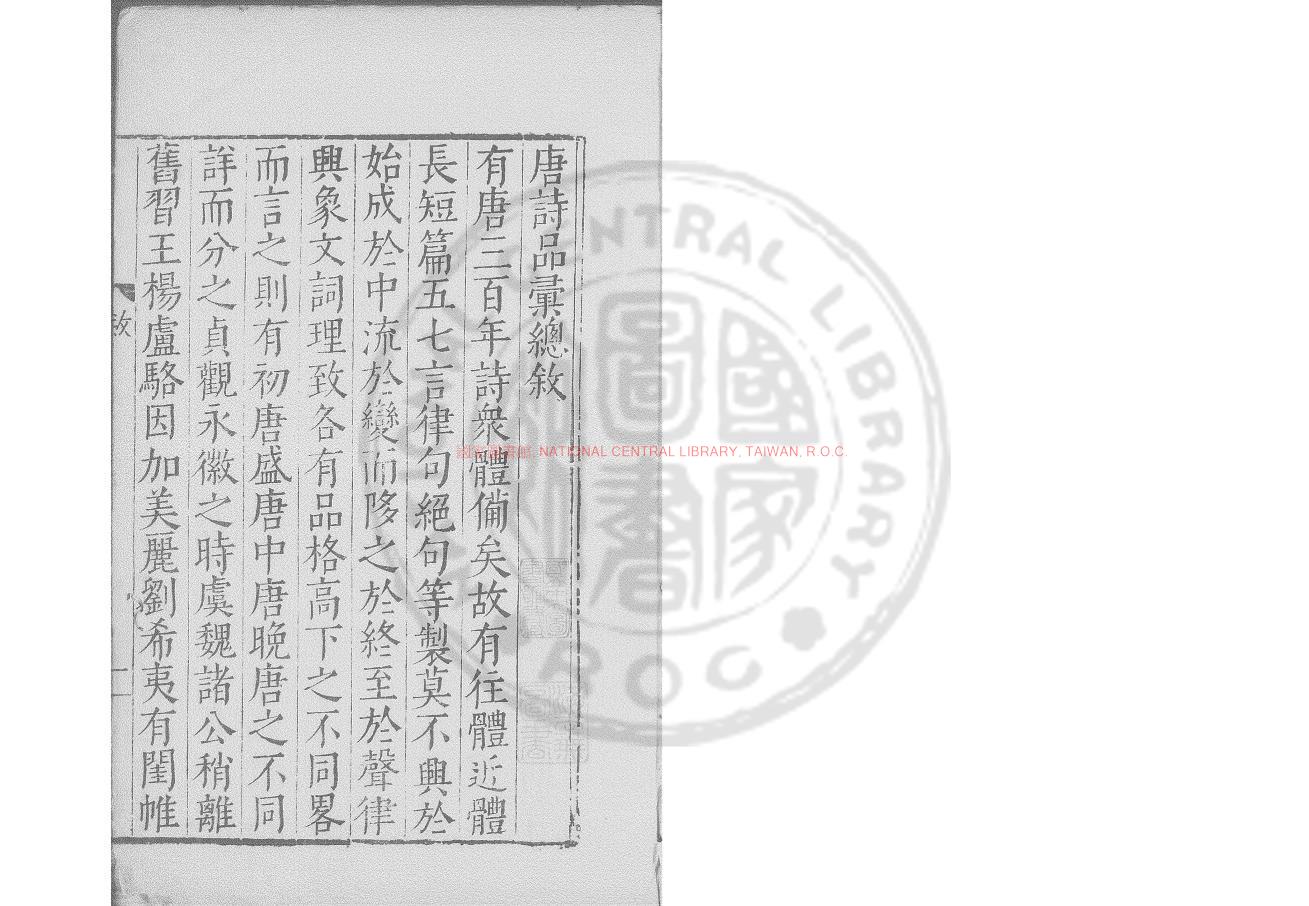 唐詩品彙總敘
有唐三百年詩衆體備矣故有往體近體
長短篇五七言律句絕句等製莫不興於
始成於中流於變而陊之於終至於聲律
興象文詞理致各有品格高下之不同畧
而言之則有初唐盛唐中唐晚唐之不同
詳而分之貞觀永徽之時虞魏諸公稍離
舊習王楊盧駱因加美麗劉希夷有閨帷
敘
一
國家圖書館, NATIONAL CENTRAL LIBRARY, TAIWAN, R.O.C.
NATIONAL CENTRAL LIBRARY
ROC
國家圖書